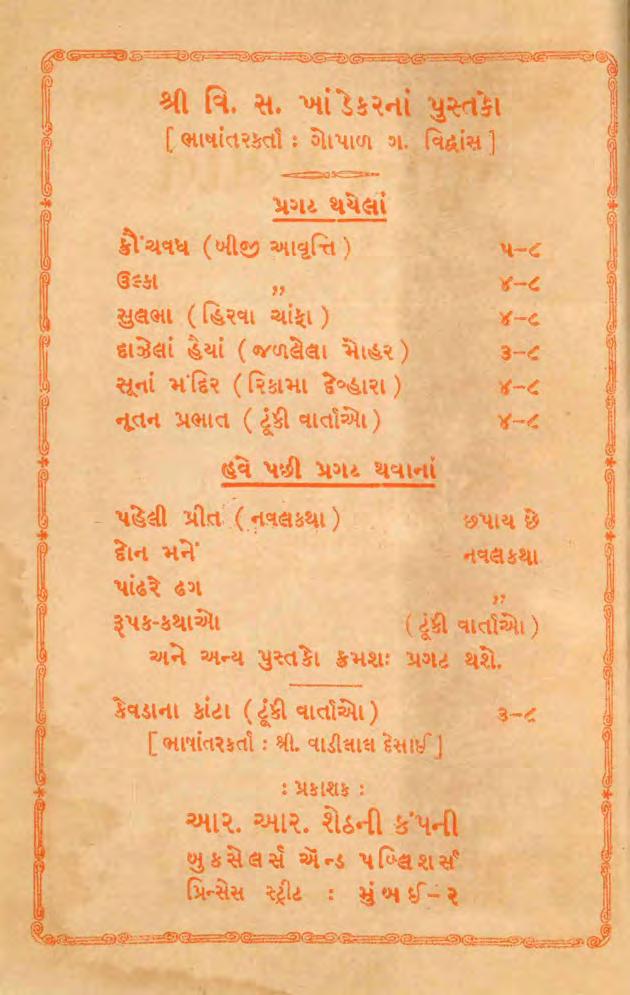 શ્રી વિ. સ. ખાંડેકરનાં પુસ્તકો
[ ભાષાંતરકર્તા : ગોપાળ ગ. વિદ્વાંસ ]
પ્રગટ થયેલાં
ક્રૌંચવધ ( બીજી આવૃત્તિ ) ૫-૮
ઉલ્કા ,, ૪-૮
સુલભા ( હિરવા ચાંફા ) ૪-૮
દાઝેલાં હૈયાં ( જળલેલા મોહર ) ૩-૮
સૂનાં મંદિર ( રિકામા દેવ્હારા ) ૪-૮
નૂતન પ્રભાત ( ટૂંકી વાર્તાઓ ) ૪-૮
હવે પછી પ્રગટ થવાનાં
પહેલી પ્રીત ( નવલકથા ) છપાય છે
દોન મનેં નવલકથા
પાંઢરે ઢગ ,,
રૂપક-કથાઓ ( ટૂંકી વાર્તાઓ )
અને અન્ય પુસ્તકો ક્રમશઃ પ્રગટ થશે.
કેવડાના કાંટા ( ટૂંકી વાર્તાઓ ) ૩-૮
[ ભાષાંતરકર્તા : શ્રી. વાડીલાલ દેસાઈ ]
: પ્રકાશક :
આર. આર. શેઠની કંપની
બુકસેલર્સ ઍન્ડ પબ્લિશર્સ
પ્રિન્સેસ સ્ટ્રીટ : મુંબઈ-૨